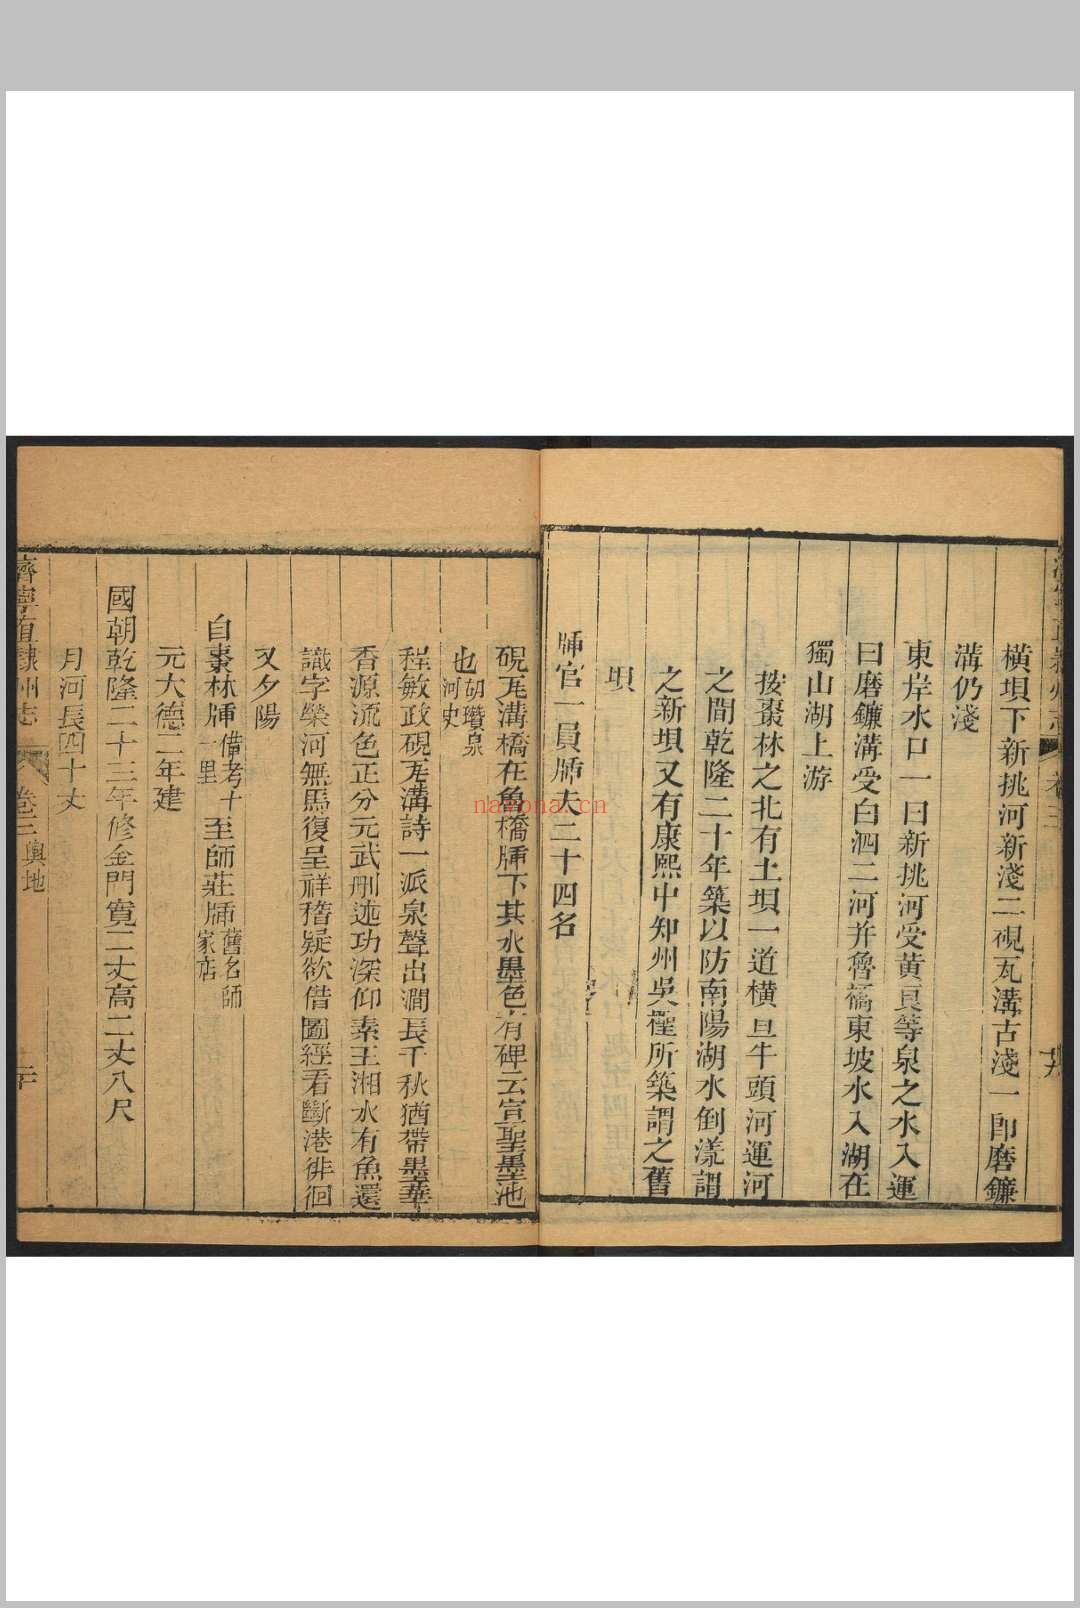 橫埧下新挑河新淺二硯瓦溝古淺一卽磨鐮
溝仍淺
東岸水口一曰新挑河受黃良等泉之水入運
曰磨鐮溝受白泗二河幷魯橋東坡水入湖在
獨山湖上游
按棗林之北有土埧一道橫亘牛頭河運河
之間乾隆二十年築以防南陽湖水倒漾謂
之新埧又有康熙中知州吳檉所築謂之舊
埧
牐官一員牐夫二十四名
硯瓦溝橋在魯橋牐下其水墨色有碑云宣聖墨池
也胡瓚泉河史
程敏政硯瓦溝詩一派泉聲出澗長千秋猶帶墨華
香源流色正分元武刪述功深仰素王湘水有魚還
識字榮河無馬復呈祥稽疑欲借圖經看斷港徘徊
又夕陽
自棗林牐備考十一里至師莊牐舊名師家店
元大德二年建
國朝乾隆二十三年修金門寬二丈高二丈八尺
月河長四十丈
濟寧直隸州志 卷二 輿地
navona.cn